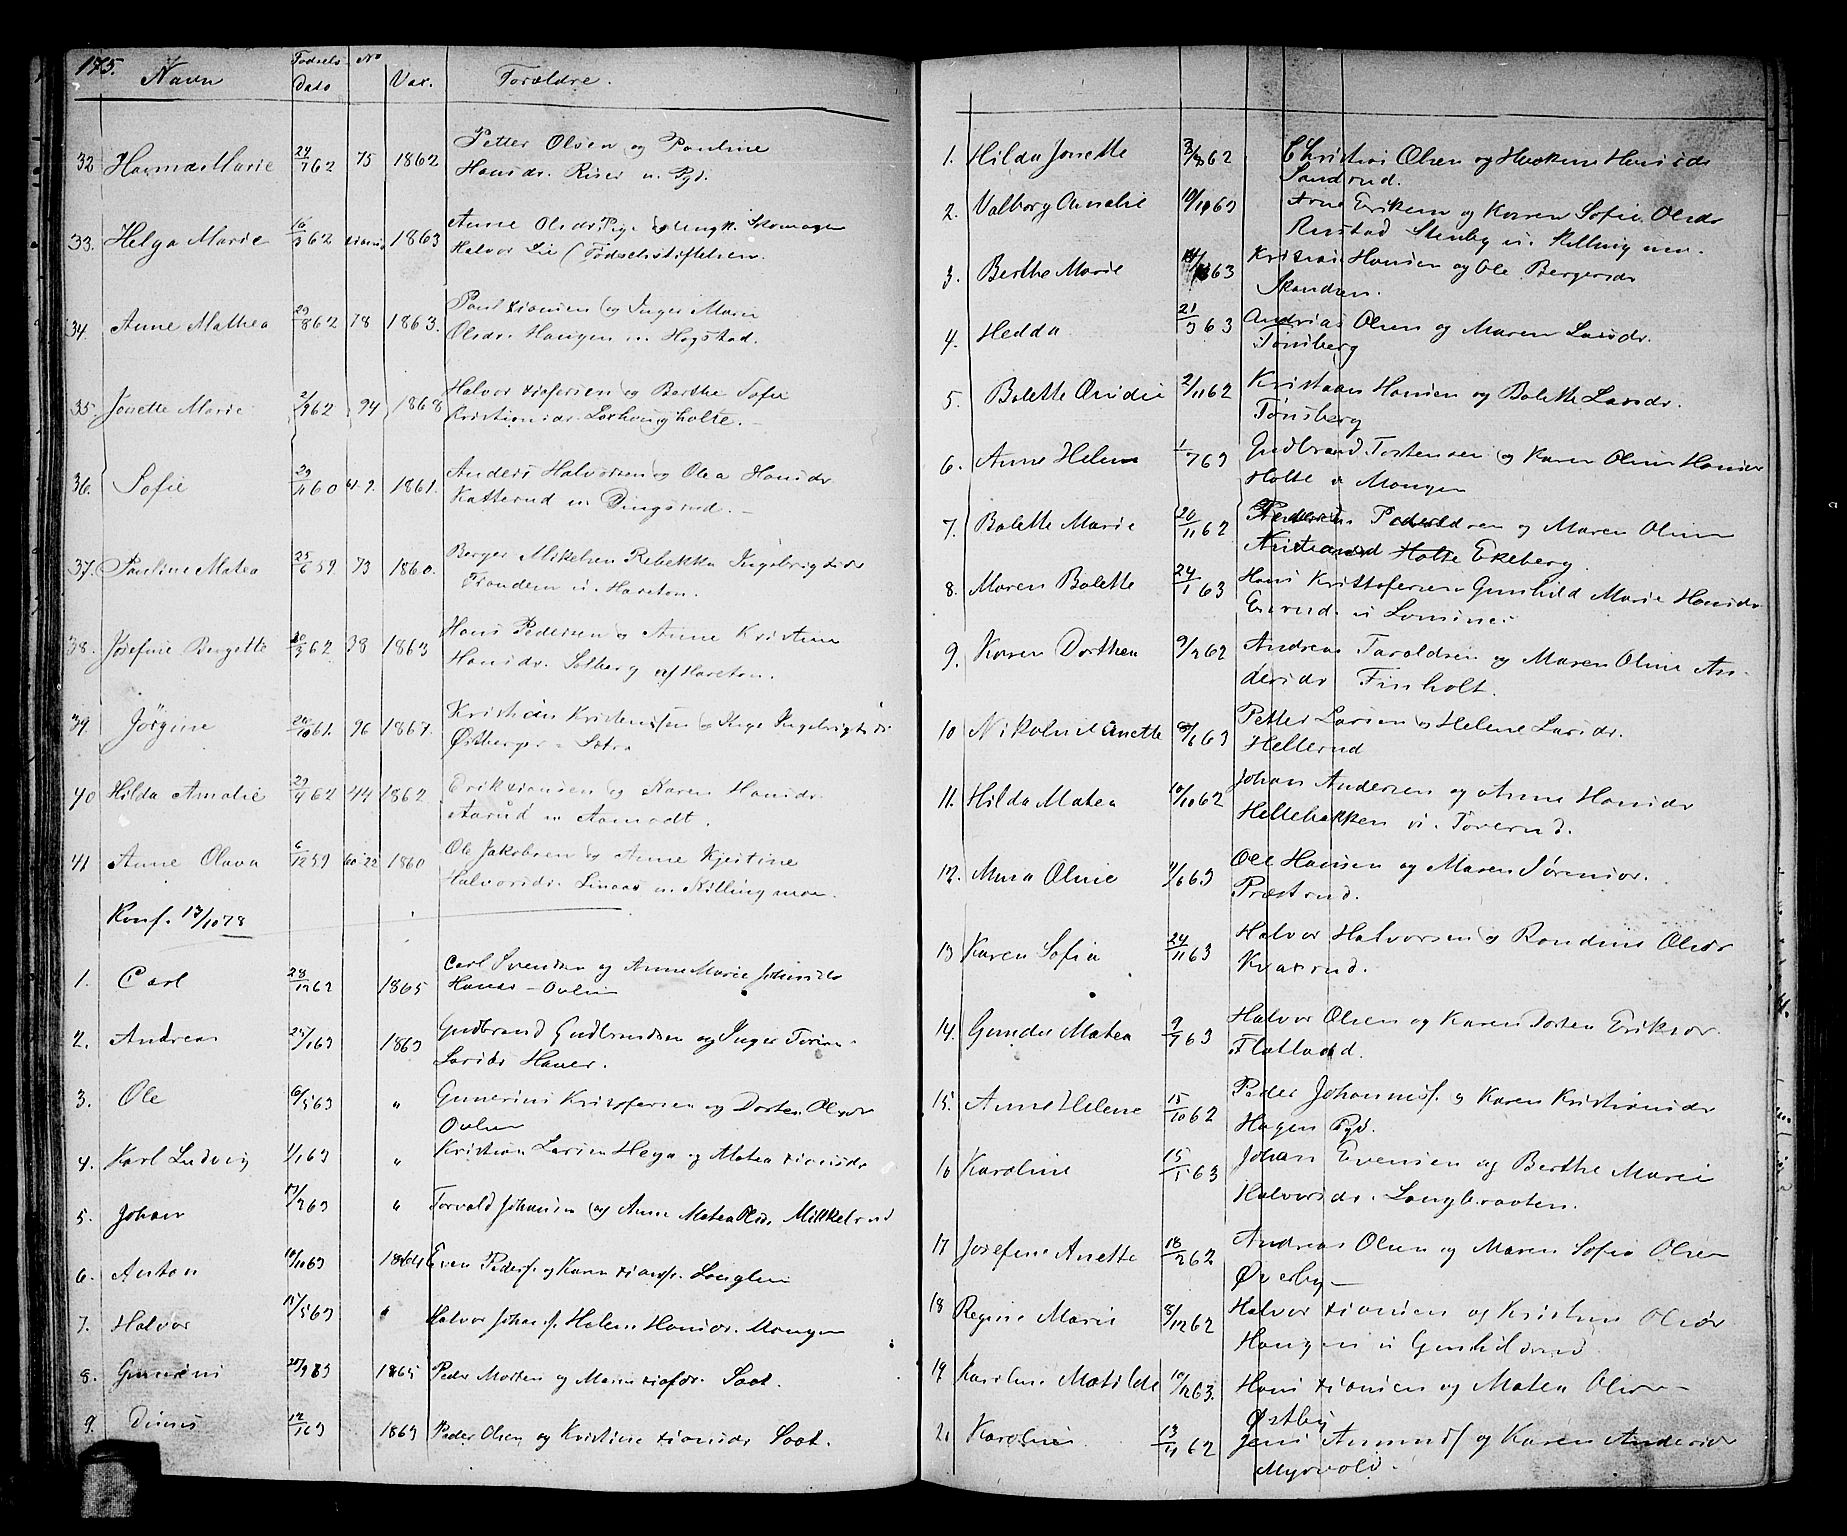 175.
Navn
Fødsels-
Dato
No
Vax.
Forældre.
32 Hanna Marie 24/7 62 75 1862 Petter Olsen og Pauline
Hansdr. Riser u. Pgd.
33. Helga Marie 16/3 62 1863 Anne Olsdr. Pige ungk.
Halvor Lie (Fødselsstiftelsen.
34. Anne Mathea 29/8 62 78 1863. Paul Xiansen og Inger Marie
Olsdr. Haugen u. Hogstad.
35. Jonette Marie 2/9 62 94 1868 Halvor Xtofersen og Berthe Sofie
Kristiansdr. holte.
36. Sofie 29/11 60 1861. Anders Halvorsen og Olea Hansdr
Katterud u. Dingsrud.
37. Pauline Matea 25/6 59 73 1860. Berger Mikelsen Rebekka Ingebrigtsdr
u. Hareton.
38. Josefine Bergette 20/3 62 38 1863 Hans Pedersen og Anne Kristine
Hansdr. Solberg af Hareton.
39. Jörgine 20/10 61. 96 1867. Kristian Kristensen og Inge Ingebrigtsdr
40 Hilda Amalie 29/4 62 44 1862 Erik Xiansen og Karen Hansdr
Aarud u. Aamodt.
41. Anne Olava 6/12 59 1860 Ole Jakobsen og Anne Kjestine
Halvorsdr. Linaas u. Killingmoe.
Konf. 13/10 78
1. Carl 28/12 62 1865 Carl Svendsen og Anne Marie
2. Andreas 25/1 63 1863 Gudbrand Gudbrandsen og Inger
Larsdr Haver.
3. Ole 6/5 63 " Gunerius Kristofersen og Dorthea Olsdr
4. Karl Ludvig 1/1 63 " Kristian Larsen Heya og Matea Xiansdr
5. Johan 13/2 63 " Torvald Johansen og Anne Matea Olsdr. Mikkelsrud
6. Anton 10/10 63 1864 Even Peders. og Karen
7. Halvor 15/5 63 " Halvor Johans. Helene Hansdr. Mangen
8. Gunerius 1865 Peder Morten og Maren Xtofdr. Soot.
9. 12/1 63 1863 Peder Olsen og Kristine Xiansdr Soot.
1. Hilda Jonette 3/8 62 Christian Olsen og Hansdr
Sandrud.
2. Valborg Amalie 63 Arne Eriksen og Karen Sofie Olsdr
Rustad Stenby u. Killingmoe.
3. Berthe Marie 63 Kristian Hansen og Ole Bergersdr
4. Hedda 21/3 63 Andrias Olsen og Maren Larsdr.
Tønsberg
5. Bolette Ovidie 2/11 62 Kristian Hansen og Bolette Larsdr.
Tønsberg
6. Anne Helene 1/7 63 Gudbrand Torstensen og Karen Oline Hansdr
Holte u Mangen
7. Bolette Marie 20/11 62 Pedersen og Maren Olsen
Holte Ekeberg.
8. Maren Bolette 24/1 63 Hans Kristofersen Gunhild Marie Hansdr
9. Karen Dorthea 9/2 62 Andreas Taraldsen og Maren Oline An-
dersdr Finholt.
10 Nikoline Anette 63 Petter Larsen og Helene Larsdr.
Hellerud
11. Hilda Matea 10/10 62 Johan Andersen og Anne Hansdr
Hellebakken v. Toverud.
12. Anna Oline 1/6 63 Ole Hansen og Maren Sørensdr.
Præstrud.
13 Karen Sofie 24/11 63 Halvor Halvorsen og Randine Olsdr
Kvaxrud.
14. Gunda Matea 9/7 63 Halvor Olsen og Karen Dorthea Eriksdr.
15. Anne Helene 15/10 62 Peder Johannes. og Karen Kristiansdr
Hagen Pgd.
16 Karoline 15/1 63 Johan Evensen og Berthe Marie
Halvorsdr. Langbraaten.
17 Josefine Anette 18/2 62 Andreas Olsen og Maren Sofie Olsen
Øverby
18 Regine Marie 8/12 62 Halvor Xiansen og Kristine Olsdr
Haugen u Gunhildsrud
19 Karoline Matilde 10/2 63. Hans Xiansen og Matea Olsdr
Østby
2. Karoline 13/11 62 Jens Amunds. og Karen Andersdr
Myrvold.